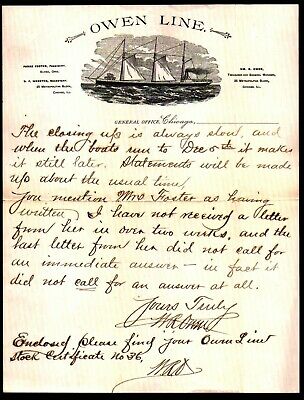 OWEN LINE.
PERRY FOSTER, PRESIDENT,
ELYRIA, OHIO.
25 METROPOLITAN BLOCK,
CHICAGO, ILL.
WM. R. OWEN,
TREASURER AND GENERAL MANAGER,
25 METROPOLITAN BLOCK,
CHICAGO, ILL.
GENERAL OFFICE, Chicago,
The closing up is always slow, and
when the boats run to Dec 5th it makes
it still later. Statements will be made
up about the usual time,
You mention Mrs Foster as having
written, I have not received a letter
from her in over two weeks, and the
last letter from her did not call for
an immediate answer — in fact it
did not call for an answer at all.
Yours Truly
W R Owen
Enclosed please find your Owen Line
Stock Certificate No 36,